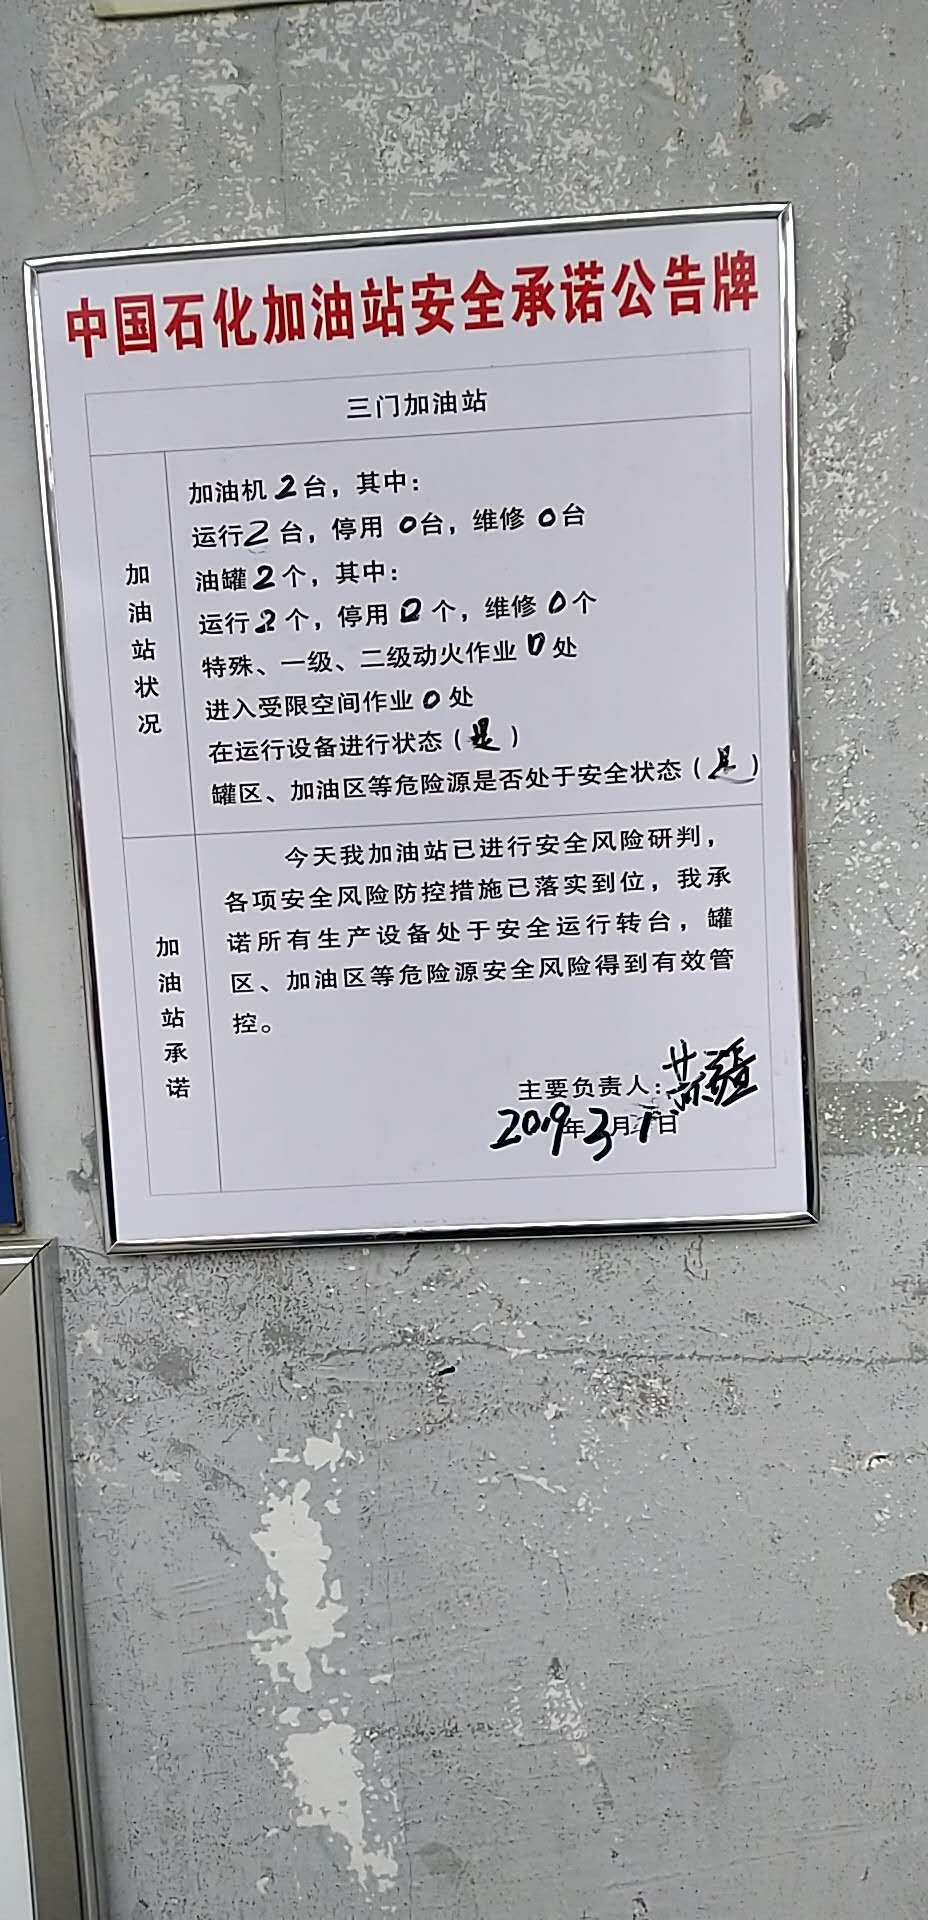 中国石化加油站安全承诺公告牌
三门加油站
加油站状况
加油机2台，其中：
运行2台，停用0台，维修0台
油罐2个，其中：
运行2个，停用0个，维修0个
特殊、一级、二级动火作业0处
进入受限空间作业0处
在运行设备进行状态（是）
罐区、加油区等危险源是否处于安全状态（是）
加油站承诺
今天我加油站已进行安全风险研判，
各项安全风险防控措施已落实到位，我承
诺所有生产设备处于安全运行转台，罐
区、加油区等危险源安全风险得到有效管
控。
主要负责人：
2019年3月1日